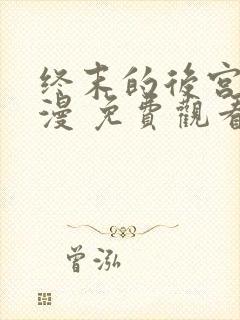 终末的後宮
漫 免費觀看
曾泓